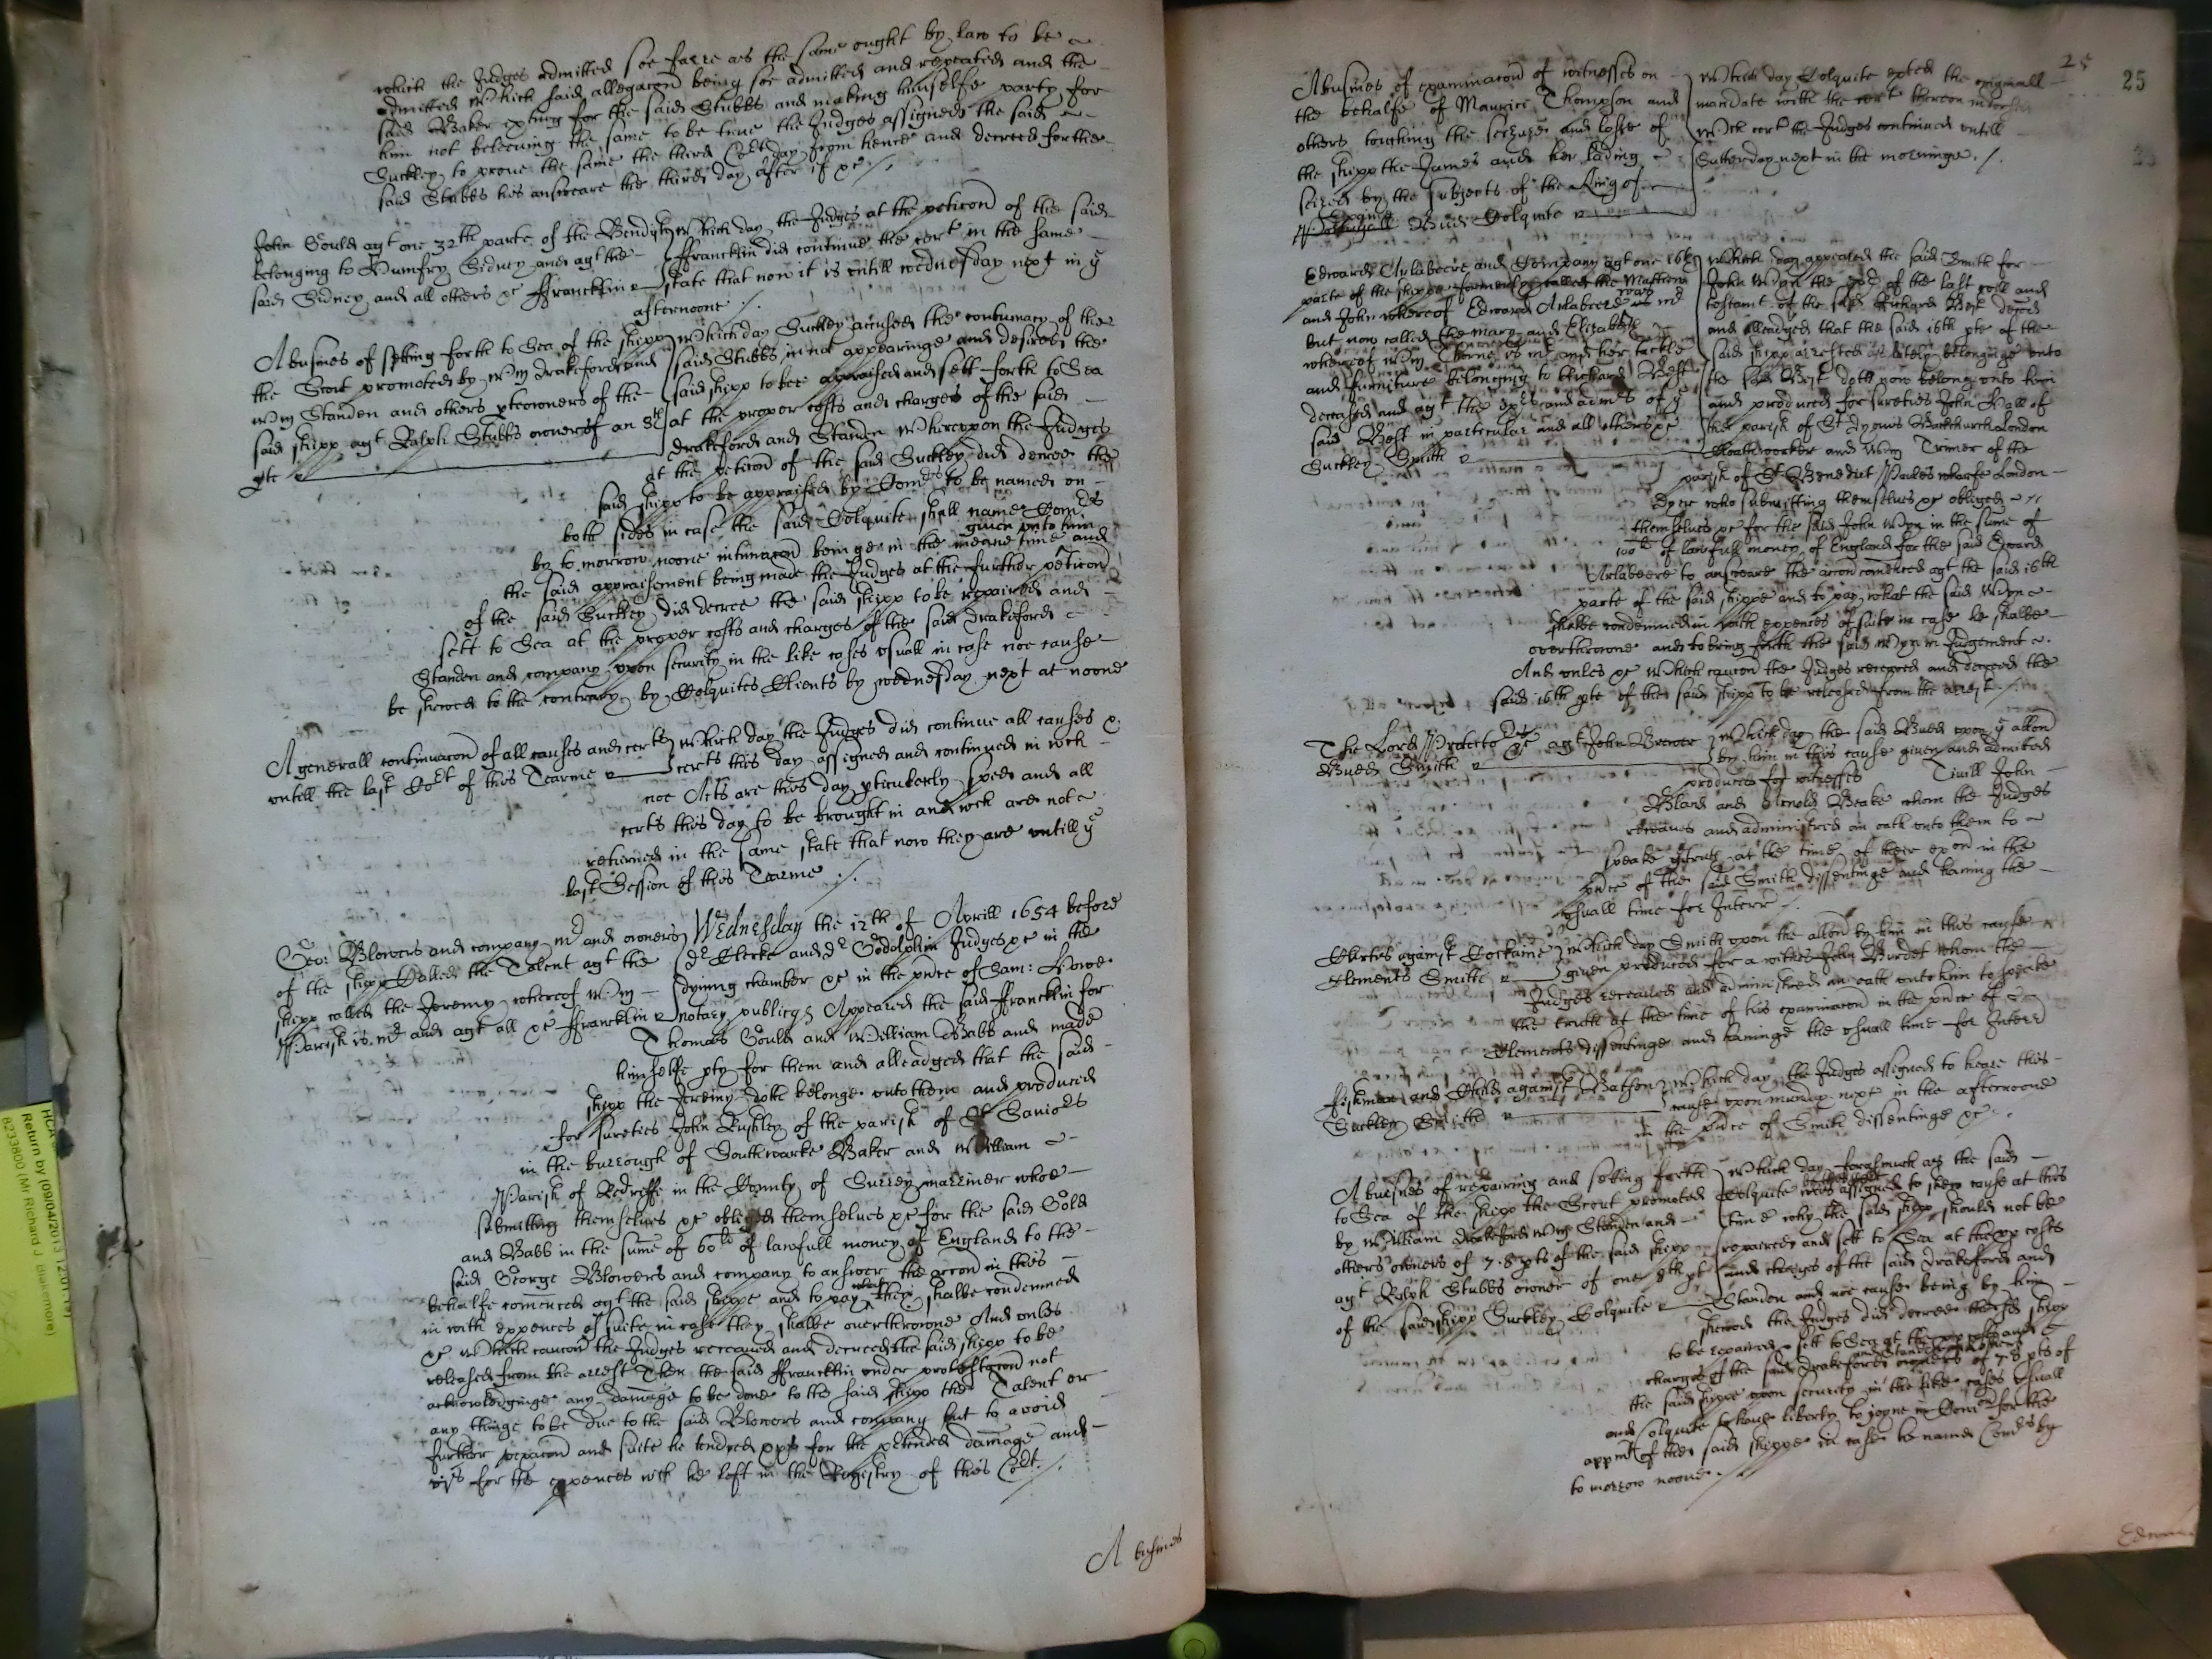 which the Judges admitted soe farre as the same ought by law to be
admitted Which said allegacon being soe admitted and repeated and the
said Baker exting for the said Stubbs and making himselfe party for
him not beleeving the same to be true the Judges assigned the said
Suckley to prove the same the third Cort day from hence and decreed for the
said Stubbs his answeare the third day after if xc /.
John Gould agt one 32th parte of the
belonging to Humfry Sidney and agt the
said Sidney and all others xc Francklin
Which day the Judges at the peticon of the said
Francklin did continue the cert in the same
state that now it is untill wednesday next in ye
afternoone /.
A busines of setting forth to Sea of the shipp
the Scout promoted by Wm Drakeford and
Wm Standen and others pteowners of the
said shipp agt Ralph Stubbs owner of an 8th
pte
Which day Suckley accused the contumacy of the
said Stubbs in not appearinge and desired the
said shipp to bee appraised and sett forth to Sea
at the proper costs and charges of the said
Drakeford and Standen Whereupon the Judges
at the peticon of the said Suckley did decree the
said shipp to be appraised by Comrs to be named on
both sides in case the said Colquite shall name Comrs
by to morrow noone intimacon beinge in the meane time given unto him and
the said appraisement being made the Judges at the further peticon
of the said Suckley did decree the said shipp to be repaired and
sett to Sea at the proper costs and charges of the said Drakeford
Standen and company upon security in the like cases usuall in case noe cause
be shewed to the contrary by Colquites Clients by wednesday next at noone
A generall continuacon of all causes and certs
untill the last Cort of this Tearme
Which day the Judges did continue all causes &
certs this day assigned and continued in wch
noe Acts are this day pticulerly sped and all
certs this day to be brought in and wch are not
returned in the same state that now they are untill ye
last Session of this Tearme /.
Geo: Blowers and company mr and owners
of the shipp Called the Talent agt the
shipp called the Jeremy whereof Wm
Parish is mr and agt all xc Francklin
Wednesday the 12th of Aprill 1654 before
dr Clerke and dr Godolphin Judges xc in the
dyning chamber xc in the pnce of Sam: Howe
notary publicq Appeared the said Francklin for
Thomas Gould and William Babb and made
himselfe pty for them and alleadged that the said
shipp the Jeremy doth belonge unto them and produced
for sureties John Rushley of the parish of St Saviors
in the burrough of Southwarke Baker and William
Parish of Redriffe in the County of Surrey marriner whoe
submitting themselves xc obliged themselves xc for the said Gold
and Babb in the sume of 60li of lawfull money of England to the
said George Blowers and company to answer the accon in this
behalfe comenced agt the said shippe and to pay what they shalbe condemned
in with expences of suite in case they shalbe overthrowne And unles
xc Which caucon the Judges received and decreed the said shipp to be
released from the arrest Then the said Francklin under protestacon not
acknowledginge any damage to be done to the said shipp the Talent or
any thinge to be due to the said Blowers and company but to avoid
further vexacon and suite he tendred for the ptended damage and
for the expences wch he left in the Registry of this Cort /.
A busines
25
25
A busines of examinacon of witnesses on
the behalfe of Maurice Thompson and
others touching the seizure and losse of
the shipp the James and her lading
seized by the subjects of the King of
Budd Colquite
Which day Colquite exted the originall
mandate with the cert thereon
Wch cert the Judges continued untill
Satterday next in the morninge. /.
Edward Arlabeere and Company agt one 16th
parte of the shippe formerly called the
and John whereof Edward Arlabeere was mr
but now called the Mary and Elizabeth
whereof Wm Thorne is mr and her tackle
and furniture belonging to Richard Best
deceased and agt the exrs and admrs of ye
said Best in particular and all others xc
Suckley Smith
Which day appeared the said Smith for
John Wyn the exr of the last will and
testamt of the said Richard Best decd
and alleadged that the said 16th pte of the
said shipp arrested as lately belonginge unto
the said Best doth now belong unto him
and produced for sureties John Hall of
the parish of St Dyonis Backchurch London
Clothworker and Wm Trimer of the
parish of St Benedict Paules wharfe London
dyer who submitting themselves xc obliged
themselves xc for the said John Wyn in the sume of
100li of lawfull money of England for the said Edward
Arlabeere to answeare the accon comenced agt the said 16th
parte of the said shippe and to pay what the said Wyn
shalbe condemned in with expences of suite in case he shalbe
overthrowne and to bring forth the said Wyn in Judgement
And unles xc Which caucon the Judges received and decreed the
said 16th pte of the said shipp to be released from the arrest /.
The Lord Protector xc agt John Brewer
Budd Smith
Which day the said Budd upon ye allon
by him in this cause given and admitted
produced for witnesses John
Bland and Arnold Beake whom the Judges
received and administred an oath unto them to
speake ye truth at the time of their exon in the
pnce of the said Smith dissentinge and having the
usuall time for Interr
Clarke against Cockaine
Clements Smith
Which day Smith upon the allon by him in this cause
given produced for a witnes John Burdet whom the
Judges received and administred an oath unto him to speake
the truth at the time of his examinacon in the pnce of
Clements dissentinge and havinge the usuall time for Interr
Fishman and Childe against Watson
Suckley Smith
Which day the Judges assigned to heare this
cause upon munday next in the afternoone
in the pnce of Smith dissentinge xc
A busines of repairing and setting forth
to Sea of the shipp the Scout promoted
by William Drakeford Wm Standen and
others owners of 7.8 pts of the said shipp
agt Ralph Stubbs owner of one 8th pt
of the said shipp Suckley Colquite
Which day forasmuch as the said
Colquite was assigned to shew cause at this
time why the said shipp should not be
repaired and sett to Sea at the pp costs
and charges of the said Drakeford and
Standen and noe cause being by him
shewed the Judges did decree the sd shipp
to be repaired & sett to Sea at the pp costs and
charges of the said Drakeford and Standen owners of 7.8 pts of
the said shippe upon security in the like cases usuall
and Colquite to have liberty to joyne in Comn for the
appmt of the said shippe in case he names Comrs by
to morrow noone /.
Edward
HCA
Return by (09/04/2013 12:01:19)
8233800 (Mr Richard J Blakemore)